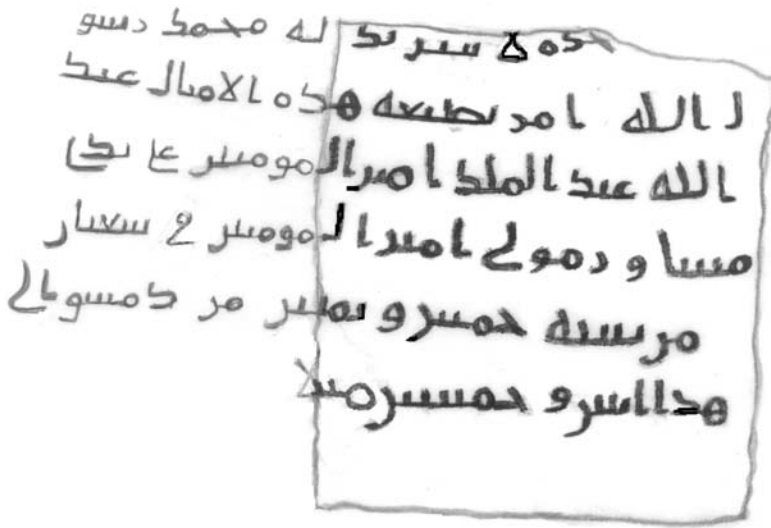 حده لا شريك له محمد رسو
ل الله امر بصنعه هذه الاميال عبد
الله عبد الملك امير المومنين على يدي
مساور مولى امير المومنين في شعبان
من سنه خمس وثمنين من دمشق الى
هذا اثنين وخمسين ميلا